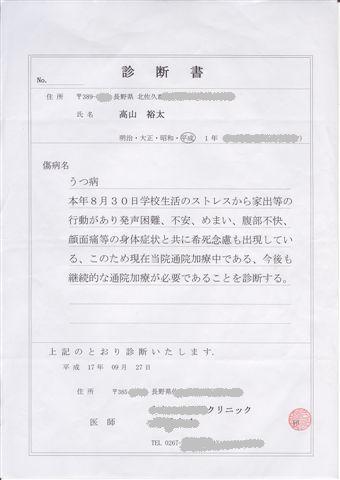 診断書
No.
住所 〒389- 長野県 北佐久
氏名 高山 裕太
明治・大正・昭和・平成 1年
傷病名
うつ病
本年8月30日学校生活のストレスから家出等の
行動があり発声困難、不安、めまい、腹部不快、
顔面痛等の身体症状と共に希死念慮も出現してい
る、このため現在当院通院加療中である、今後も
継続的な通院加療が必要であることを診断する。
上記のとおり診断いたします.
平成 17年 09月 27日
住所 〒385- 長野県
クリニック
医師 印
TEL 0267-